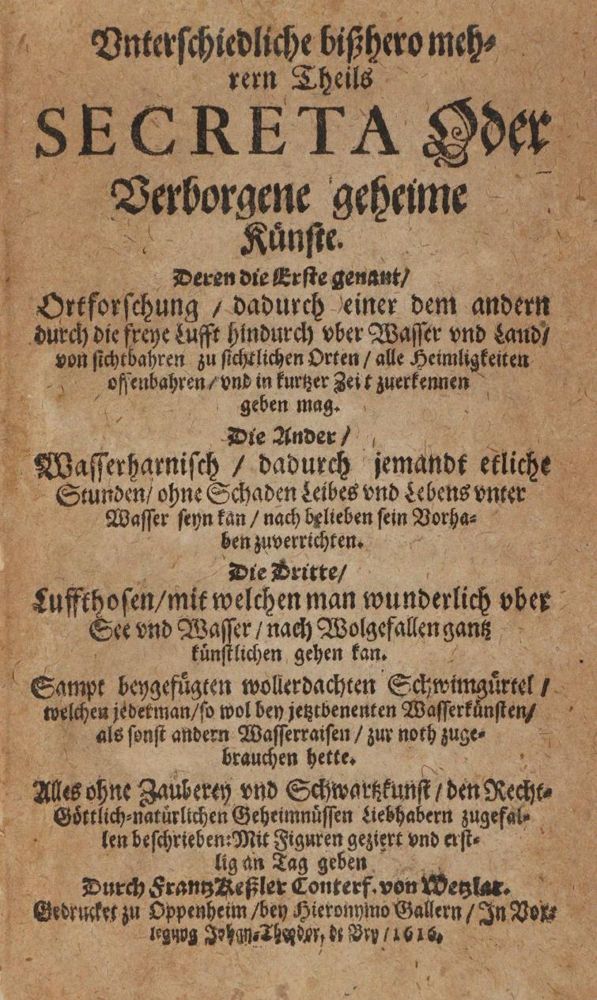 Vnterschiedliche bißhero meh-
rern Theils
SECRETA Oder
Verborgene geheime
Künste.
Deren die Erste genant/
Ortforschung / dadurch einer dem andern
durch die freye Lufft hindurch vber Wasser vnd Land/
von sichtbahren zu sichtlichen Orten / alle Heimligkeiten
offenbahren / vnd in kurtzer Zeit zuerkennen
geben mag.
Die Ander /
Wasserharnisch / dadurch jemandt etliche
Stunden / ohne Schaden Leibes vnd Lebens vnter
Wasser seyn kan / nach belieben sein Vorha-
ben zuverrichten.
Die Dritte /
Luffthosen / mit welchen man wunderlich vber
See vnd Wasser / nach Wolgefallen gantz
künstlichen gehen kan.
Sampt beygefügten wollerdachten Schwimgürtel /
welchen jederman / so wol bey jetztbenenten Wasserkünsten /
als sonst andern Wasserraisen / zur noth zuge-
brauchen hette.
Alles ohne Zauberey vnd Schwartzkunst / den Recht-
Göttlich-natürlichen Geheimnüssen Liebhabern zugefal-
len beschrieben: Mit Figuren geziert vnd erst-
lig an Tag geben
Durch Frantz Keßler Conterf. von Wetzlar.
Gedrucket zu Oppenheim / bey Hieronymo Gallern / In Vor-
legung Johan-Theodor, de Bry / 1616.